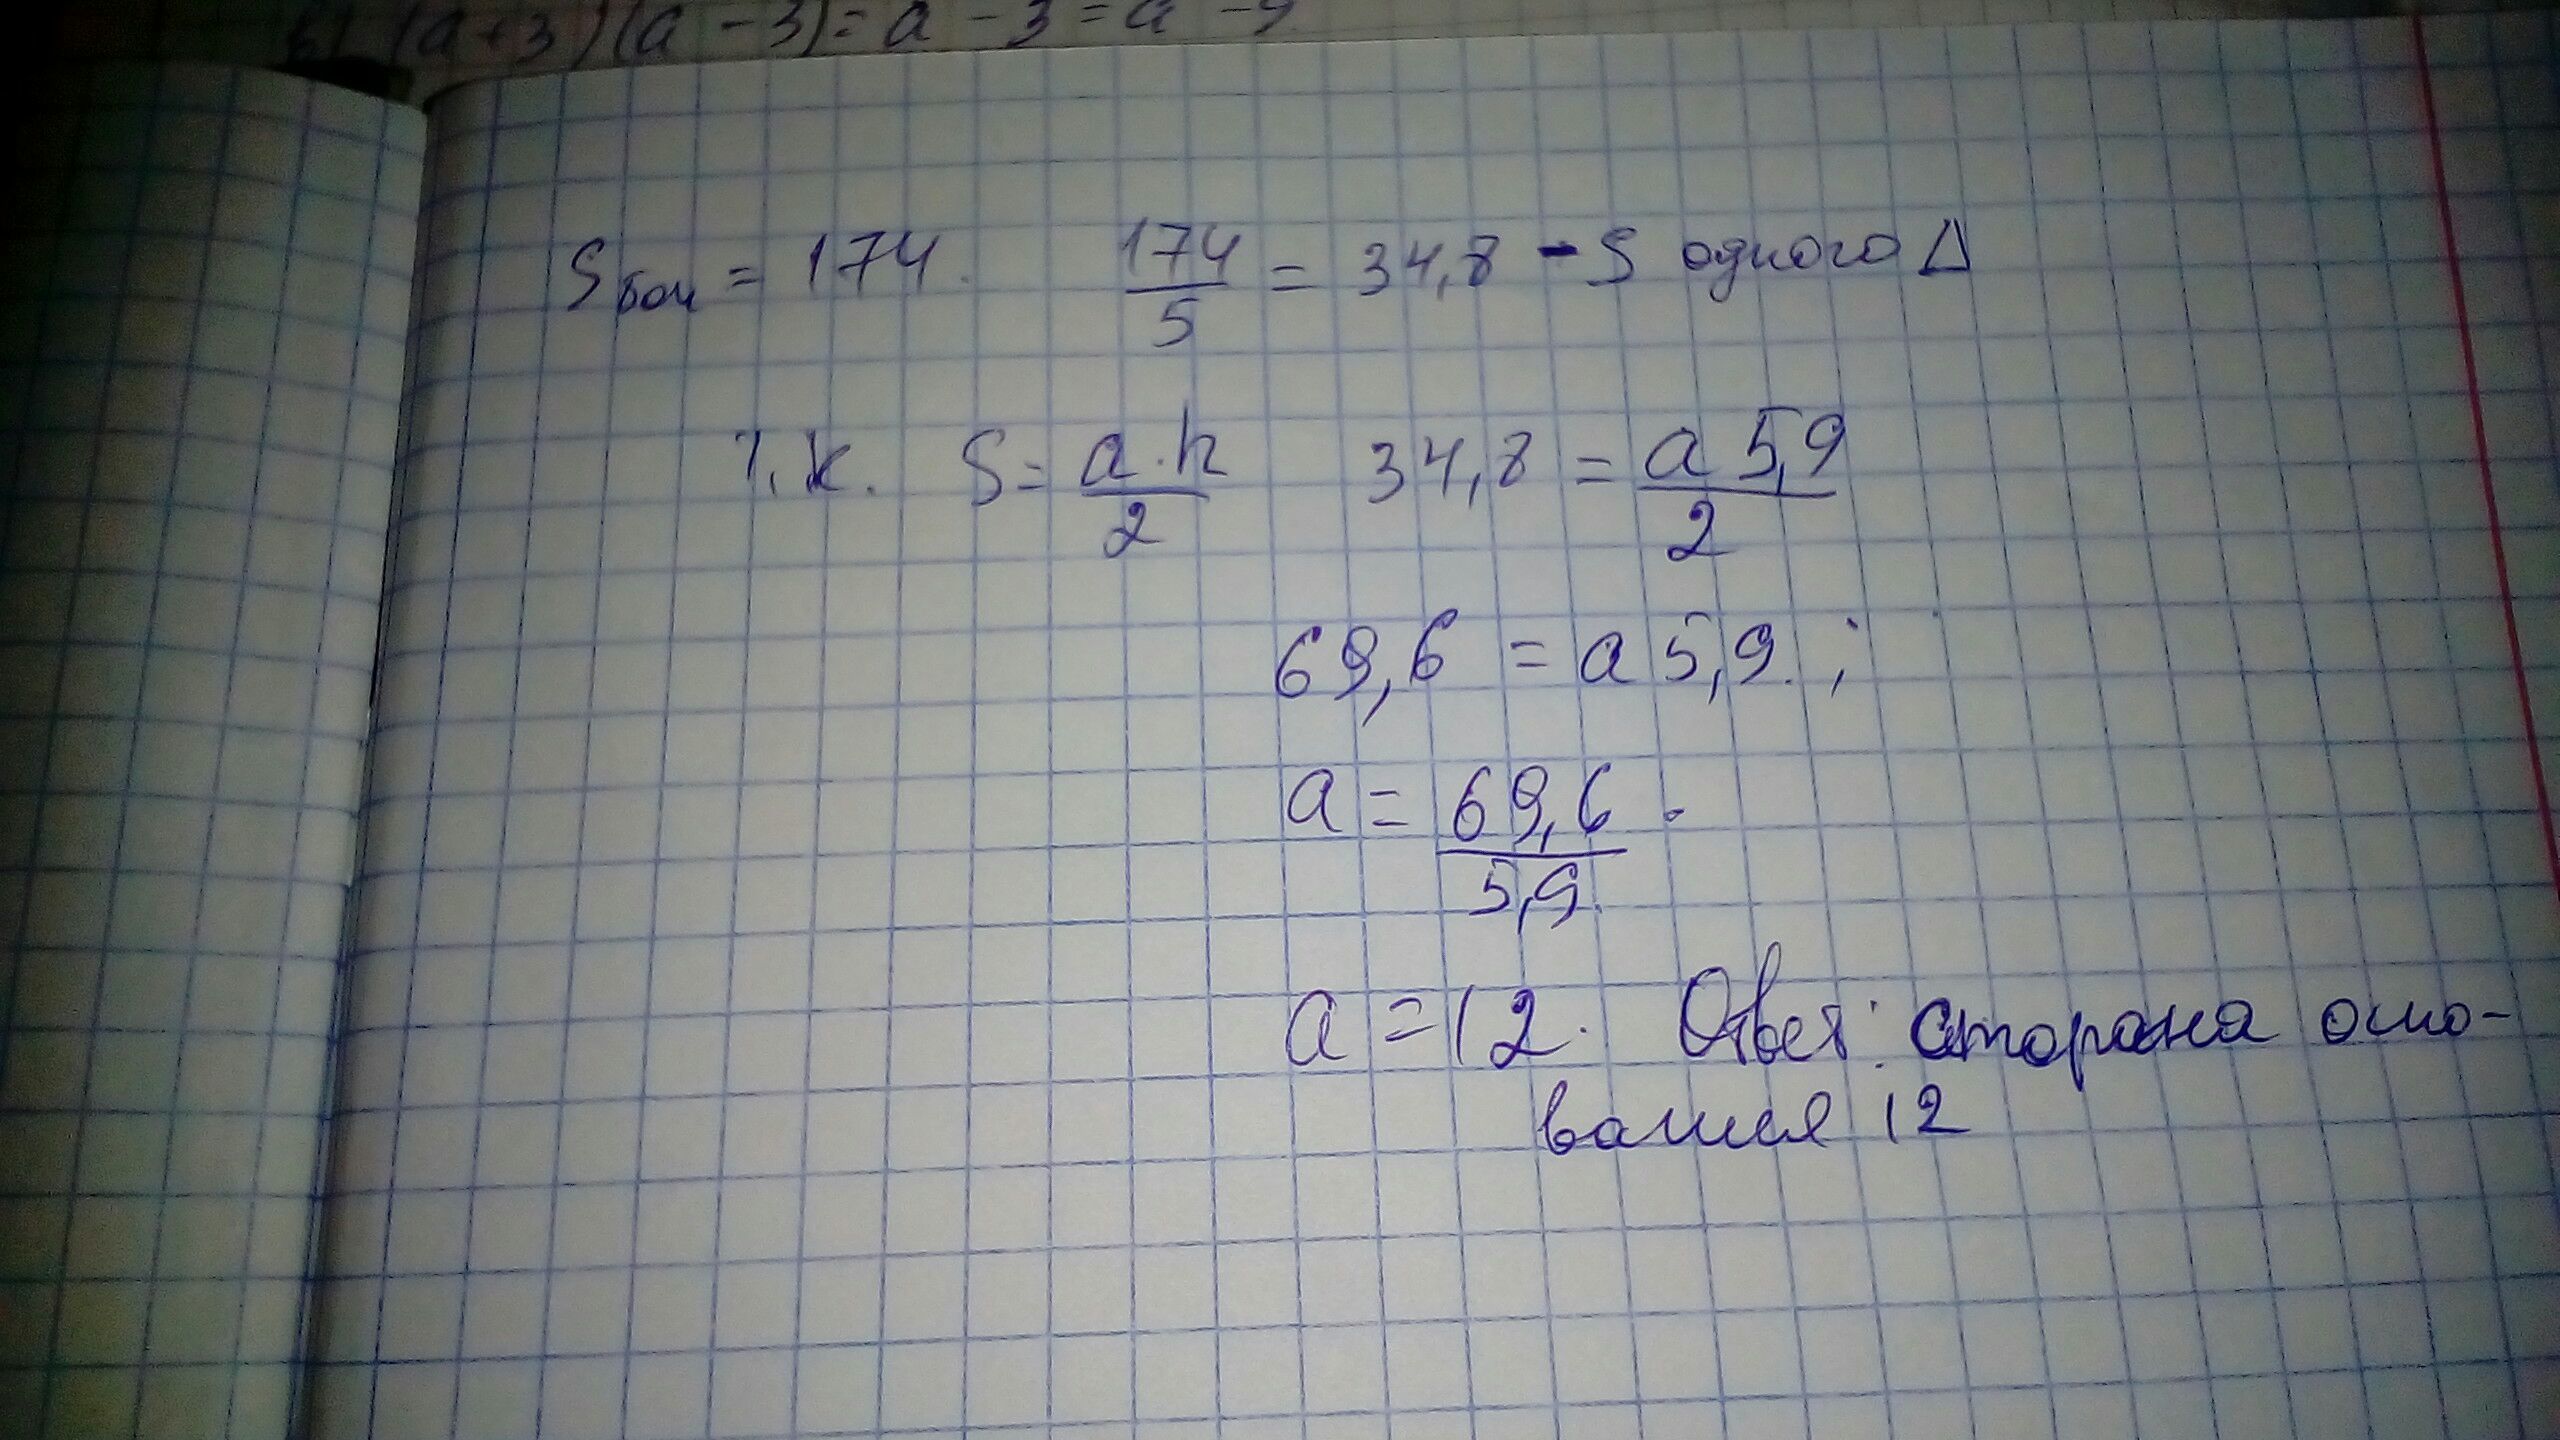 б) (a+3)(a-3)=a-3=a-9
Sбок = 174. 174/5 = 34,8 - S одного Δ
т.к. S = a·h/2 34,8 = a 5,9/2
69,6 = a 5,9. ;
a = 69,6/5,9.
a = 12. Ответ: сторона осно-
вания 12